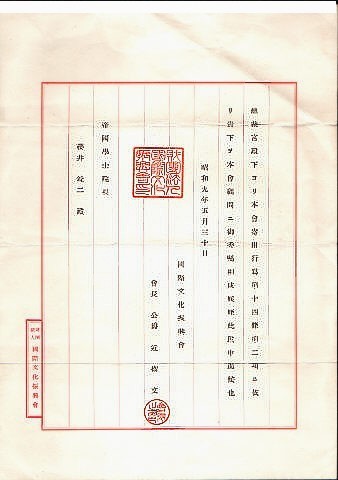 總裁宮殿下ヨリ本會寄附行爲第十四條第二項ニ依
リ貴下ヲ本會顧問ニ御委囑相成候條此段申進候也
昭和九年五月三十日
國際文化振興會
會長 公爵 近衞文
帝國學士院長
櫻井錠二殿
財團法人
國際文化振興會